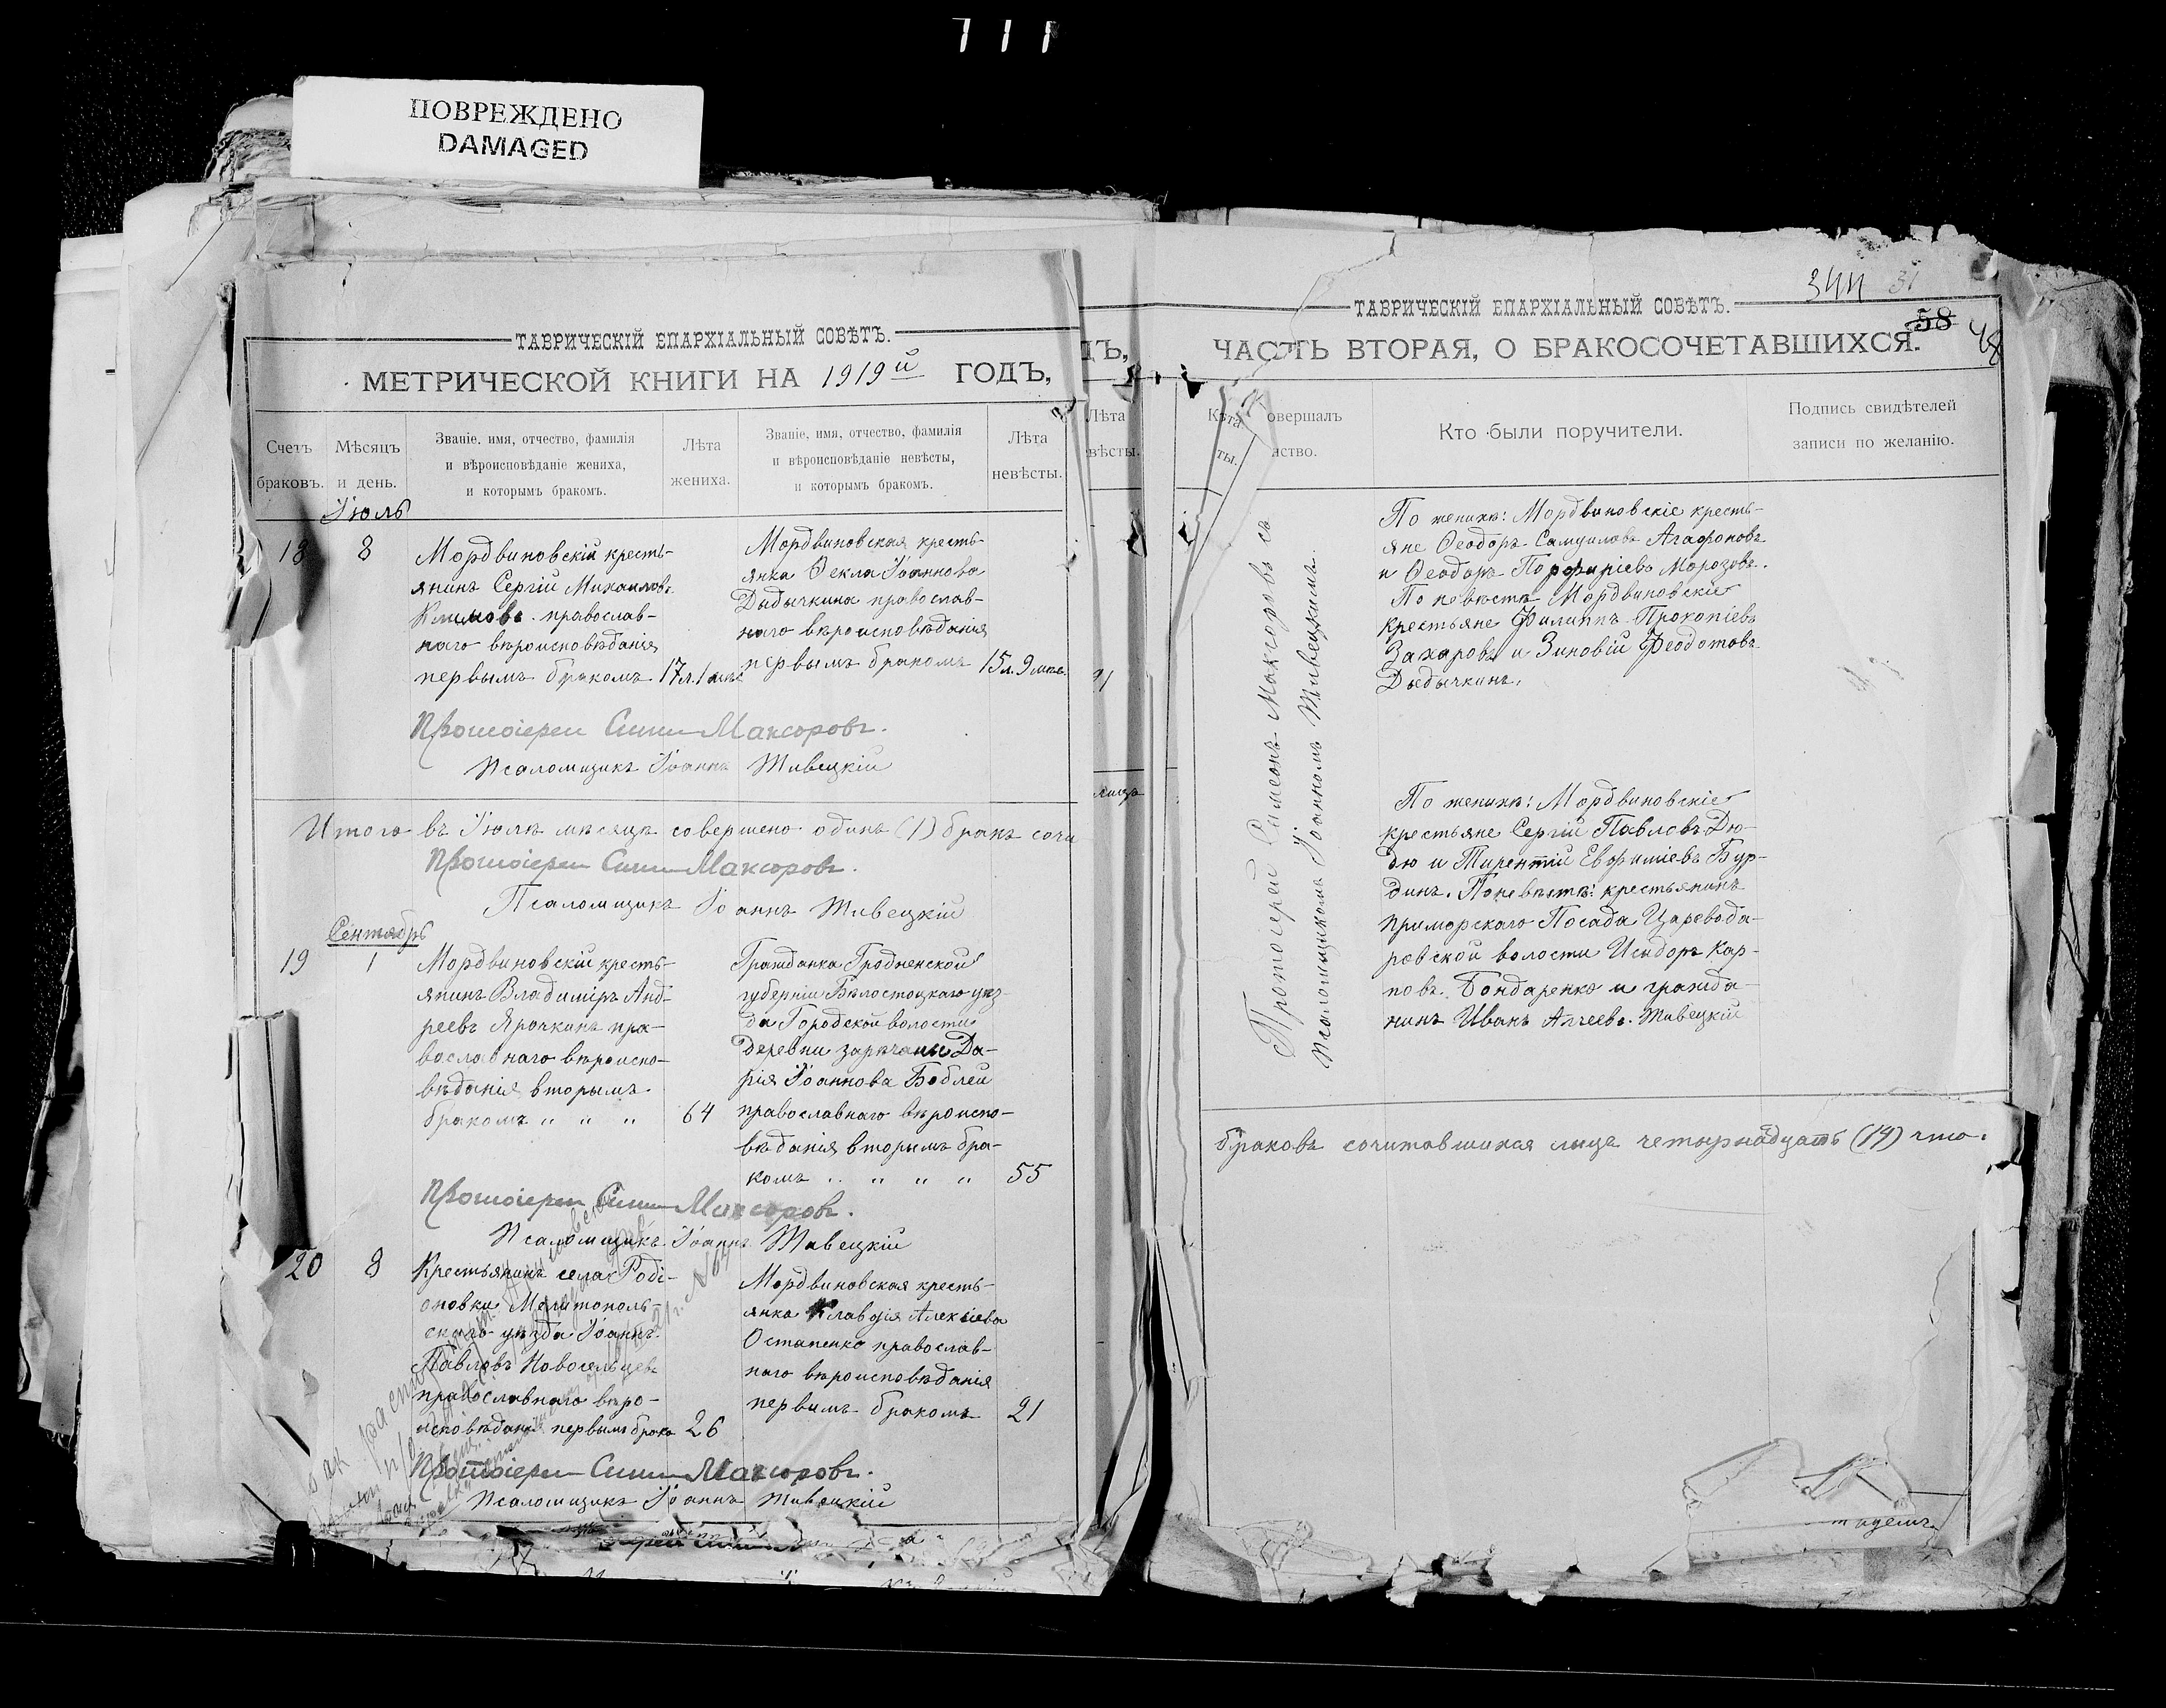 ПОВРЕЖДЕНО
DAMAGED
ТАВРИЧЕСКІЙ ЕПАРХІАЛЬНЫЙ СОВѢТЪ.
МЕТРИЧЕСКОЙ КНИГИ НА 1919й ГОДЪ,
Счетъ браковъ.
Мѣсяцъ и день.
Званіе, имя, отчество, фамилія
и вѣроисповѣданіе жениха,
и которымъ бракомъ.
Лѣта
жениха.
Званіе, имя, отчество, фамилія
и вѣроисповѣданіе невѣсты,
и которымъ бракомъ.
Лѣта
невѣсты.
Іюль
18
8
Мордвиновскій кресть-
янинъ Сергій Михаиловъ
Климовъ православ-
наго вѣроисповѣданія
первымъ бракомъ
17л.1мѣс
Мордвиновская кресть-
янка Ѳекла Іоаннова
Дыдычкина православ-
наго вѣроисповѣданія
первымъ бракомъ
15л.9мѣс.
Протоіерей Симеонъ Максоровъ.
Псаломщикъ Іоаннъ Живецкій
Итого въ Іюлѣ мѣсяцѣ совершено одинъ (1) бракъ сочи
Протоіерей Симеонъ Максоровъ.
Псаломщикъ Іоаннъ Живецкій
Сентябрь
19
1
Мордвиновскій кресть-
янинъ Владиміръ Анд-
реевъ Ярочкинъ пра-
вославнаго вѣроиспо-
вѣданія вторымъ
бракомъ " " "
64
Гражданка Гродненской
губерніи Бѣлостоцкаго уѣз-
да Городской волости
деревни Зарѣчаны Да-
рія Іоаннова Боблей
православнаго вѣроиспо-
вѣданія вторымъ бра-
комъ " " " "
55
Протоіерей Симеонъ Максоровъ.
Псаломщикъ Іоаннъ Живецкій
20
8
Крестьянинъ села Родi-
оновки Мелитополь-
скаго уѣзда Іоаннъ
Павловъ Новосельцевъ
православнаго вѣро-
исповѣданія первымъ брако
26
Мордвиновская кресть-
янка Клавдія Алексіева
Остапенко православ-
наго вѣроисповѣданія
первымъ бракомъ
21
Протоіерей Симеонъ Максоровъ.
Псаломщикъ Іоаннъ Живецкій
ДЪ,
Лѣта
вѣсты.
21
лицъ
344 31
ТАВРИЧЕСКІЙ ЕПАРХІАЛЬНЫЙ СОВѢТЪ.
58
48
ЧАСТЬ ВТОРАЯ, О БРАКОСОЧЕТАВШИХСЯ.
овершалъ
нство.
Кто были поручители.
Подпись свидѣтелей
записи по желанію.
Протоіерей Симеонъ Максоровъ съ
Псаломщикомъ Іоанномъ Живецкимъ.
По женихѣ: Мордвиновскіе кресть-
яне Ѳеодоръ Самуиловъ Агафоновъ
и Ѳеодоръ Порфиріевъ Морозовъ.
По невѣстѣ Мордвиновскіе
крестьяне Филиппъ Прокопіевъ
Захаровъ и Зиновій Феодотовъ
Дыдычкинъ.
По женихѣ: Мордвиновскіе
крестьяне Сергій Павловъ Дю-
дю и Тирентій Евфиміевъ Бур-
динъ. По невѣстѣ: крестьянинъ
приморскаго Посада Царевода-
ровской волости Исидоръ Кар-
повъ Бондаренко и гражда-
нинъ Иванъ Живецкій
браковъ сочитавшихся лицъ четырнадцать (14) что: